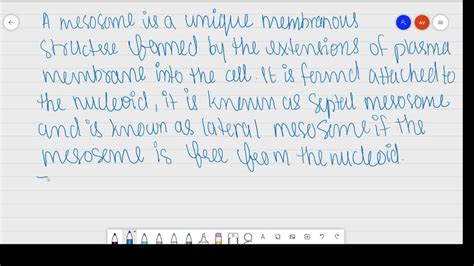 A mesosome is a unique membranous
structure formed by the extensions of plasma
membrane into the cell. It is found attached to
the nucleoid, it is known as septal mesosome
and is known as lateral mesosome if the
mesosome is free from the nucleoid.
AV